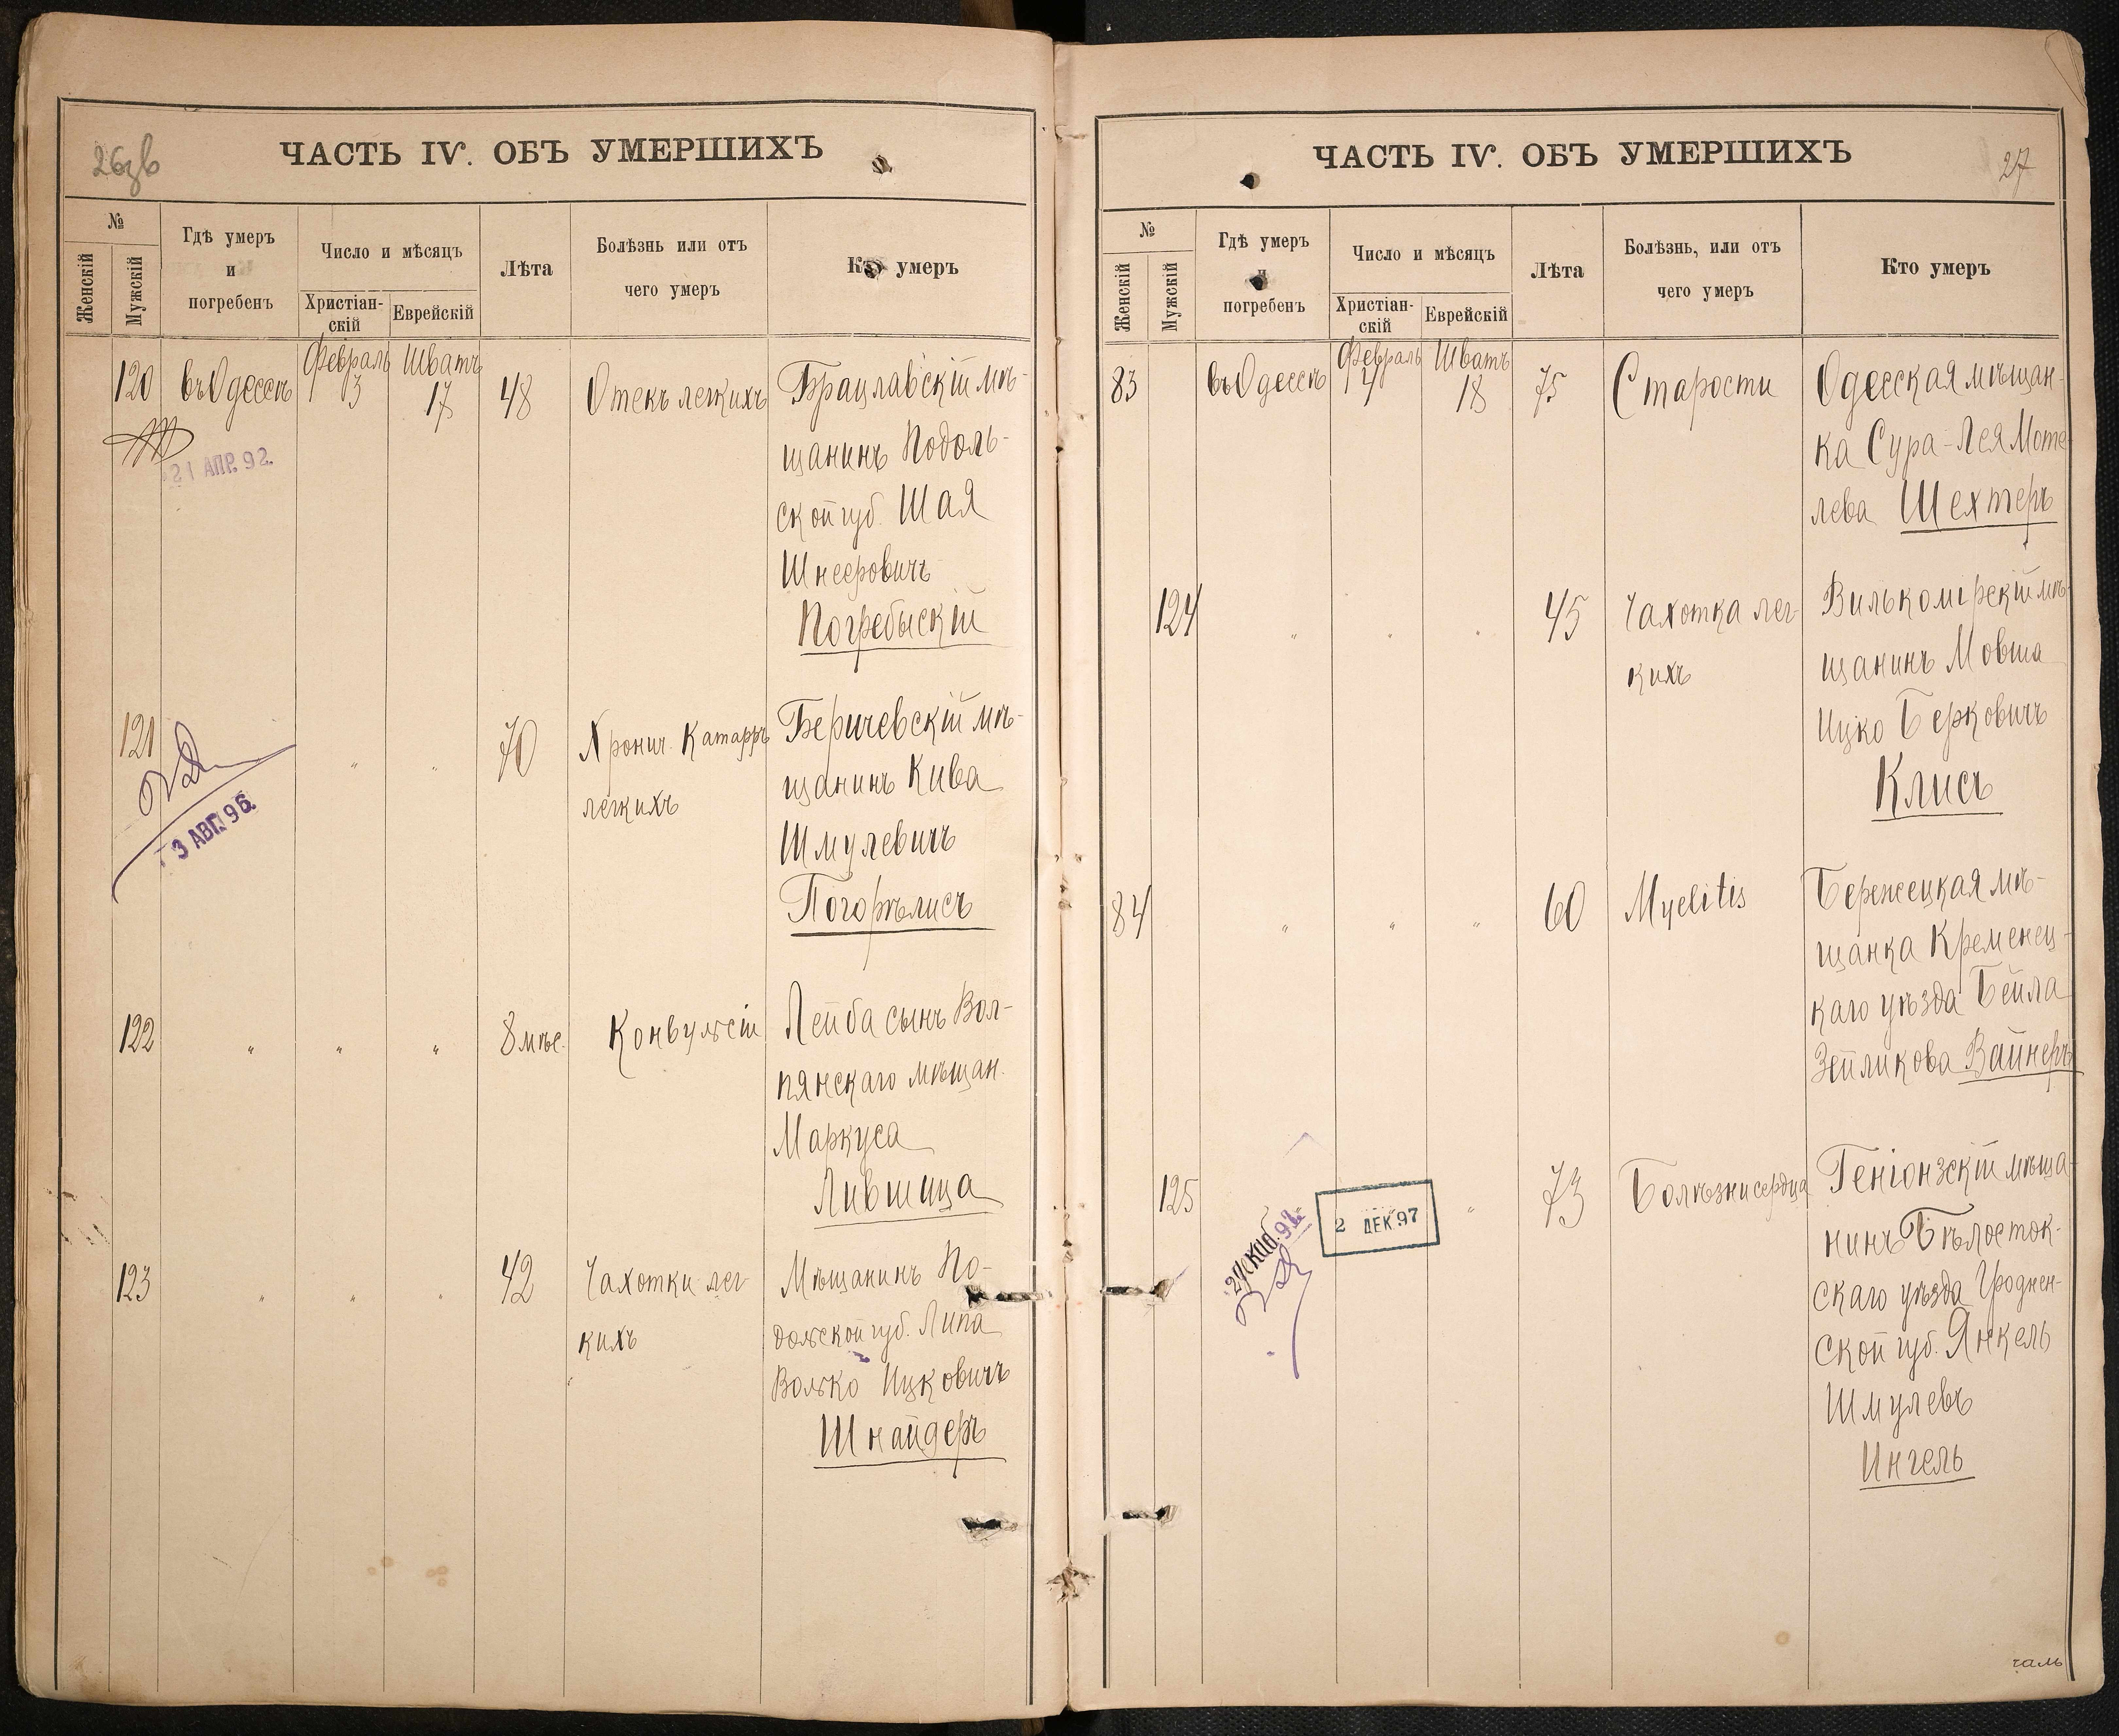 26об
ЧАСТЬ IV. ОБЪ УМЕРШИХЪ
№
Женскій
Мужскій
Гдѣ умеръ
и
погребенъ
Число и мѣсяцъ
Христіан-
скій
Еврейскій
Лѣта
Болѣзнь или отъ
чего умеръ
Кто умеръ
120 въ Одессѣ Февраль 3 Шватъ 17 48 Отекъ легкихъ Брацлавскій мѣ-
щанинъ Подоль-
ской губ. Шая
Шнееровичъ
Погребыскій
21 АПР. 92.
121 " " 70 Хронич. Катарръ Беричевскій мѣ-
легкихъ щанинъ Кива
Шмулевичъ
Погорѣлисъ
3 АВГ. 96.
122 " " " 8 мѣс. Конвульсіи Лейба сынъ Вол-
пянскаго мѣщан.
Маркуса
Лившица
123 " " " 42 Чахотки лег- Мѣщанинъ По-
кихъ дольской губ. Липа
Волько Ицковичъ
Шнайдеръ
ЧАСТЬ IV. ОБЪ УМЕРШИХЪ
27
№
Женскій
Мужскій
Гдѣ умеръ
и
погребенъ
Число и мѣсяцъ
Христіан-
скій
Еврейскій
Лѣта
Болѣзнь, или отъ
чего умеръ
Кто умеръ
83 въ Одессѣ Февраль 4 Шватъ 18 75 Старости Одесская мѣщан-
ка Сура-Лея Моте-
лева Шехтеръ
124 " " " 45 Чахотка лег- Вилькомірскій мѣ-
кихъ щанинъ Мовша
Ицко Берковичъ
Клисъ
84 " " " 60 Myelitis Бережецкая мѣ-
щанка Кременец-
каго уѣзда Бейла
Зейликова Вайнеръ
125 " 73 Болѣзни сердца Геніонзскій мѣща-
нинъ Бѣлосток-
скаго уѣзда Гроднен-
ской губ. Янкель
Шмулевъ
Ингель
2 ДЕК. 97